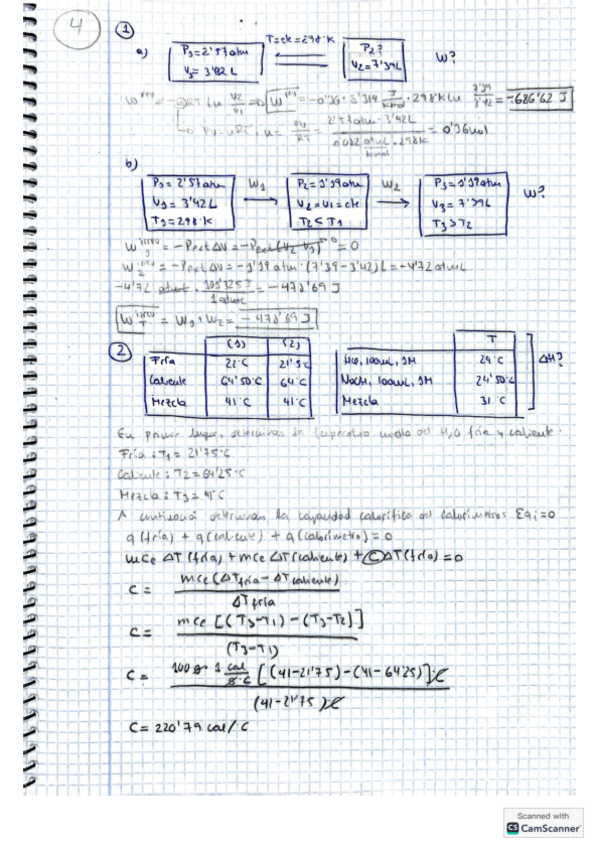 4
1
a)
P1=2'57atm
V1=3'42L
T=cte=298·K
P2?
V2=7'39L
W?
W rev = -nRT ln V2/V1 => W rev = -0'36·8'314 J/Kmol ·298K ln 7'39/3'42 = -686'62 J
PV=nRT, n= PV/RT = 2'57atm·3'42L / 0'082 atmL/Kmol ·298K = 0'36mol
b)
P1=2'57atm
V1=3'42L
T1=298·K
W1
P2=1'19atm
V2=V1=cte
T2<T1
W2
P3=1'19atm
V3=7'39L
T3>T2
W?
W1 irrev = -Pext ΔV = -Pext(V2-V1) 0 = 0
W2 irrev = -Pext ΔV = -1'19 atm·(7'39-3'42)L = -4'72 atmL
-4'72 atmL · 101'325J / 1atmL = -478'69 J
W T irrev = W1+W2 = -478'69 J
2
(1) (2)
Fría 22·C 21'5·C
Caliente 64'50·C 64·C
Mezcla 41·C 41·C
T
HCl, 100mL, 1M 24·C
NaOH, 100mL, 1M 24'50·C
Mezcla 31·C
ΔH?
En primer lugar, determinamos la temperatura media del H2O fría y caliente.
Fría: T1=21'75·C
Caliente: T2=64'25·C
Mezcla: T3=41·C
A continuació determinam la capacidad calorífica del calorímetro: Σqi=0
q(fría) + q(caliente) + q(calorímetro)=0
mCe ΔT(fría)+mCe ΔT(caliente) + CΔT(fría)=0
C= mCe(ΔTfría-ΔTcaliente) / ΔTfría
C= mce [(T3-T1)-(T3-T2)] / (T3-T1)
C= 100g·1 cal/g·C [(41-21'75)-(41-64'25)]·C / (41-21'75)·C
C=220'79 cal/·C
Scanned with
CS CamScanner